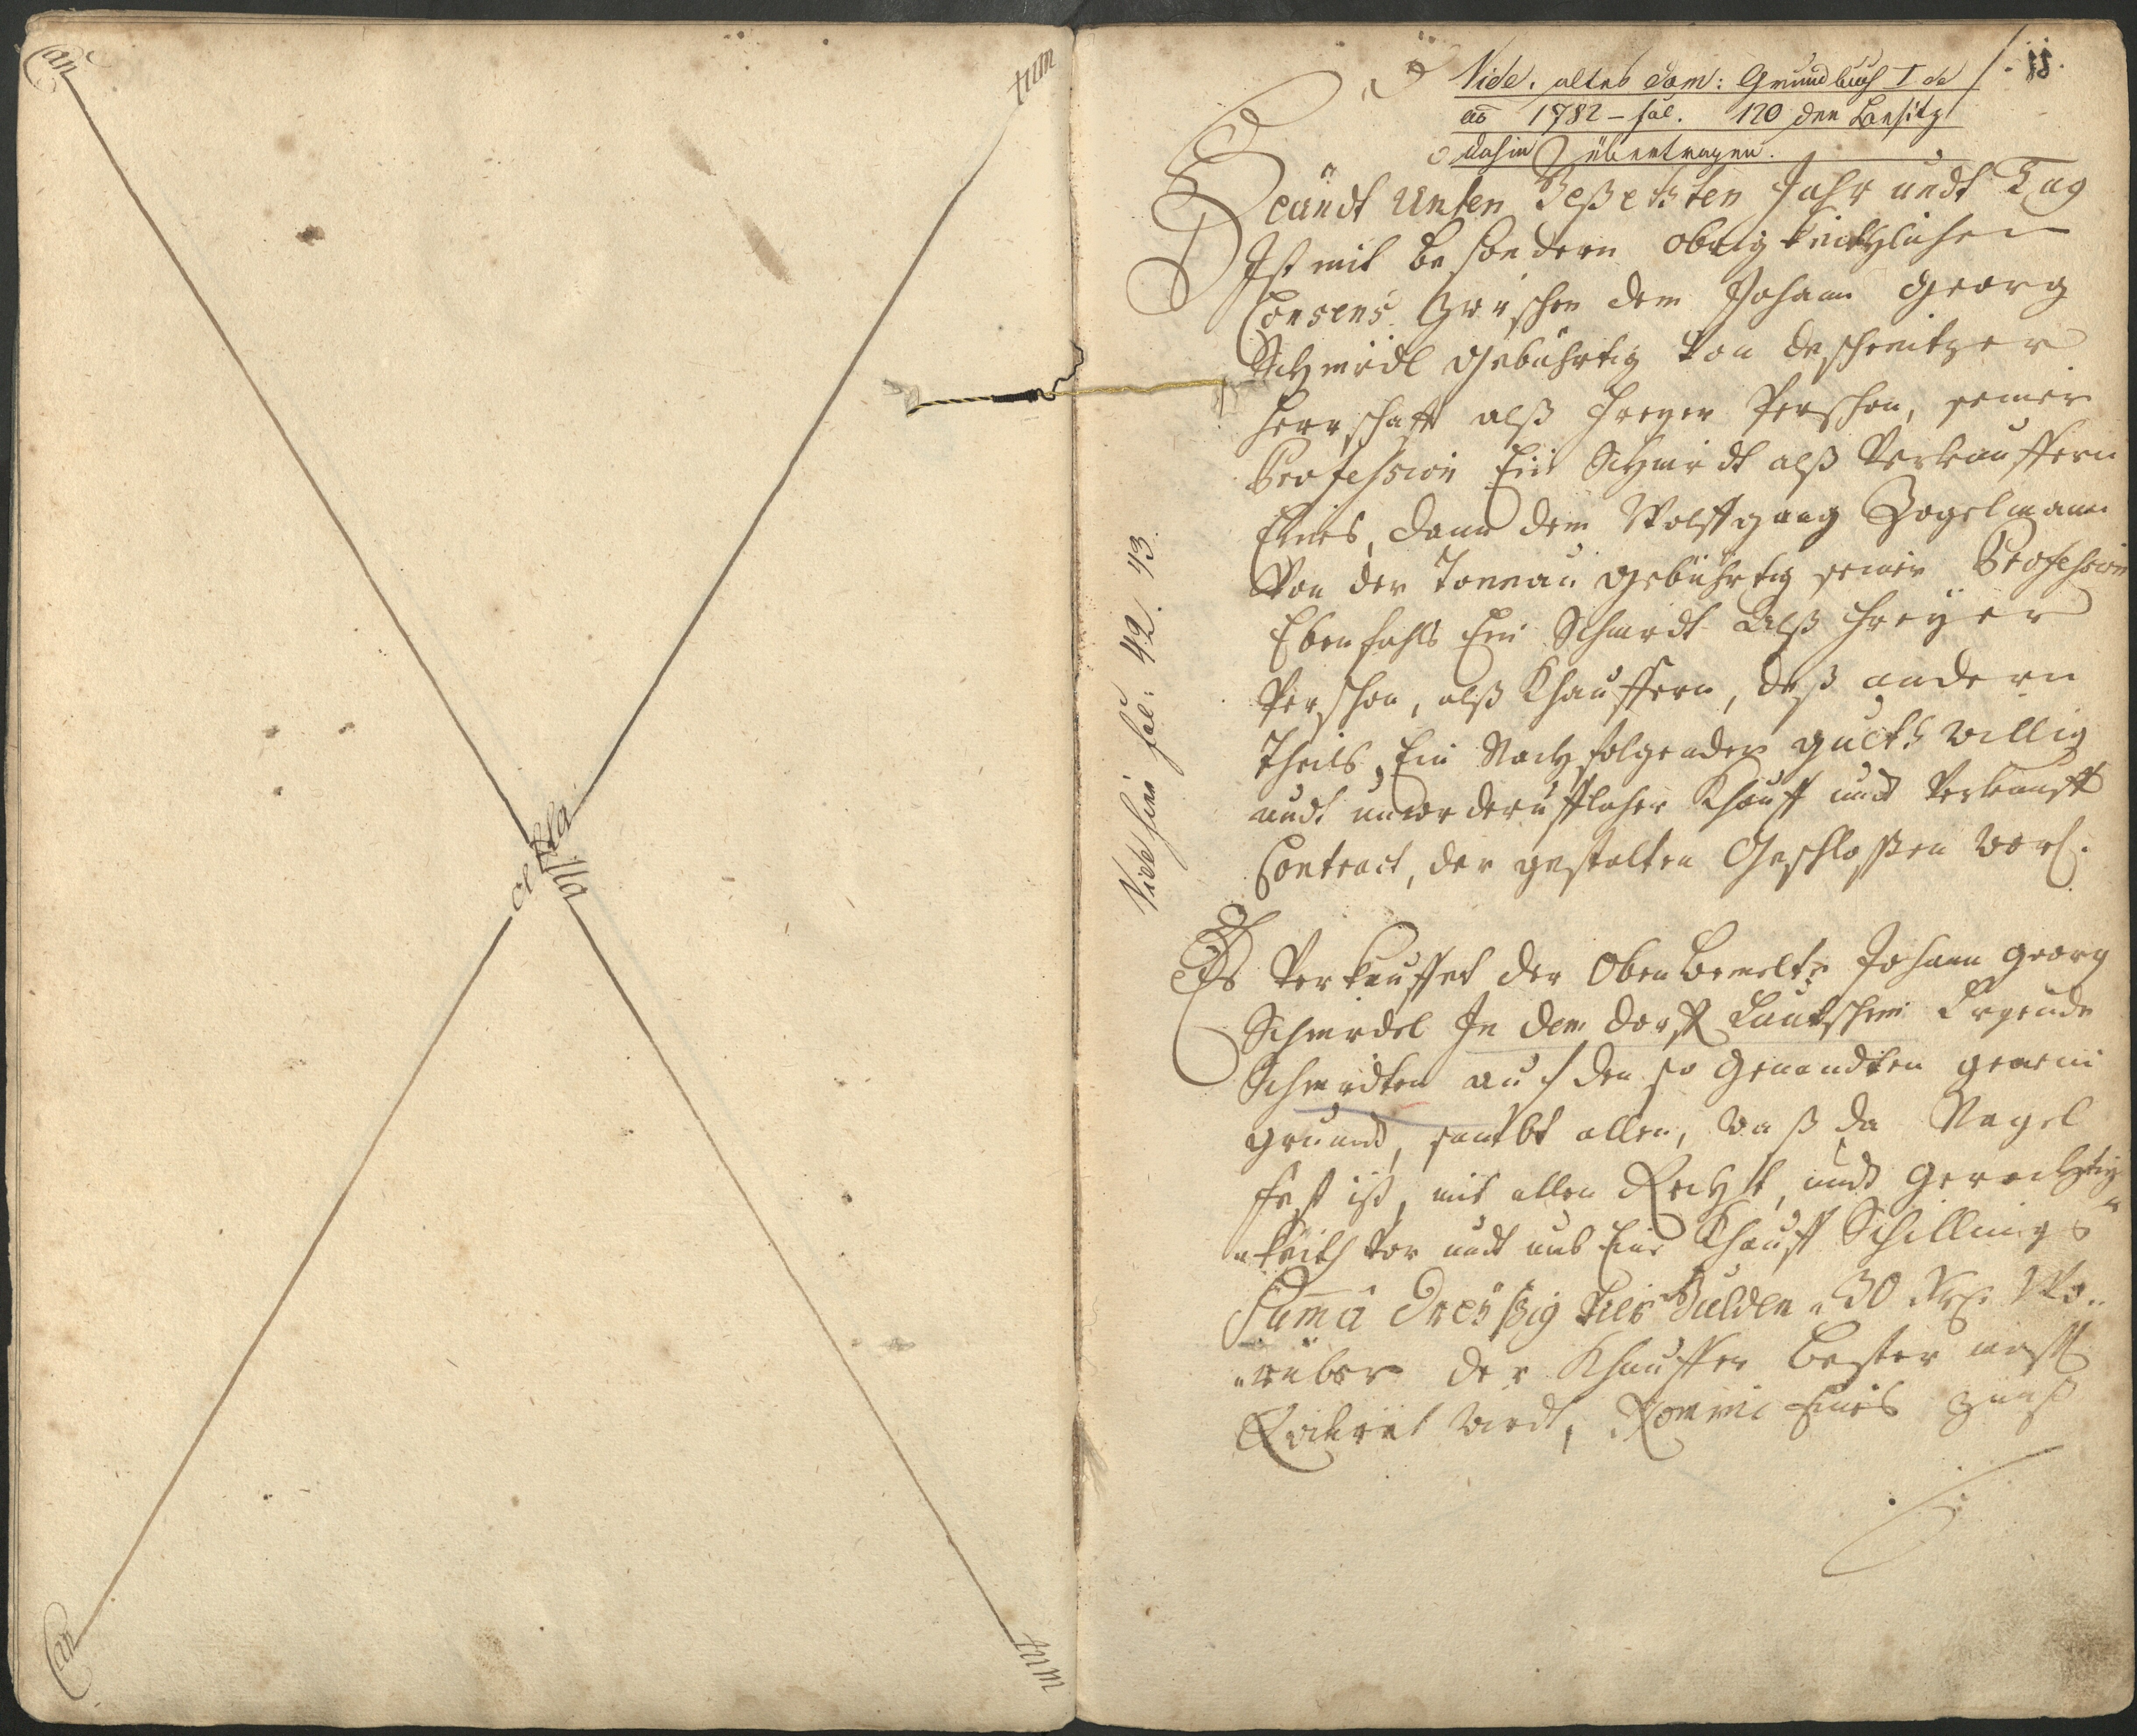 Can cella tum
Can cella tum
11.
Vide. altes Dom: Grundbuch I de
ao 1782 – fol. 120 den Besitz
dahin übertragen.
Heündt Unten Geßetzten Jahr undt Tag
Ist mit besondern obrigkeitlichen
Consens Zwischen dem Johann Georg
Schmidl gebührtig von deschenitzer
Herrschafft alß freyer Persohn, seiner
Profession Ein Schmidt alß Verkauffern
Eines, dann dem Wolffgang Zogelmann
Von der Tonnau gebührtig seiner Profession
Ebenfahls Ein Schmidt Alß freyer
Persohn, alß Khauffern, deß andern
Theils, Ein Nachfolgender gueth willig
undt unwiderrufflicher Khauff undt Verkaufft
Contract, der gestalten Geschloßen word.
Vide hinc fol: 42. 43.
Es Verkauffet der Obenbemelte Johann Georg
Schmidel In dem Dorff Lautschim Ligende
Schmidten auf den so Genandten gemein
grundt, sambt allen, waß da Nagel
fest ist, mit allen Recht, undt Gerechtig
keith vor undt umb Eine Khauff Schillings
Summa Dreyßig Gulden 30 Kr. Wo..
rüber der Khauffer Bester masß
Quitiret wirdt, Kommic Eines Zünß